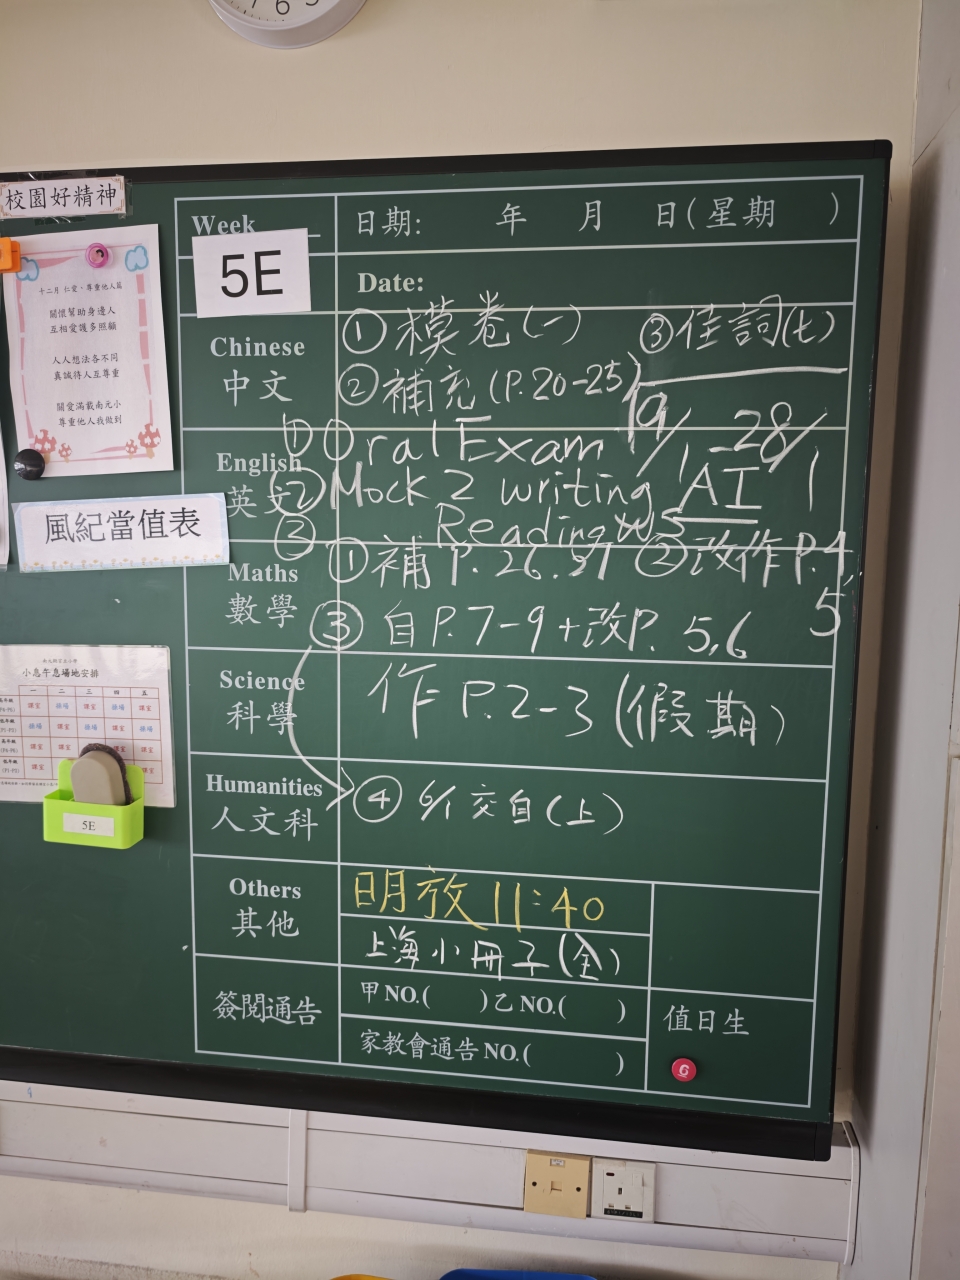 7 6 5
校園好精神
十二月 仁愛、尊重他人篇
關懷幫助身邊人
互相愛護多照顧
人人想法各不同
真誠待人互尊重
關愛滿載南元小
尊重他人我做到
風紀當值表
小息午息場地安排
一 二 三 四 五
5E
Week
日期: 年 月 日(星期 )
5E
Date:
Chinese
中文
① 模卷(一) ③佳詞(七)
② 補充(P.20-25)
English
英文
① Oral Exam 19/1-28/1
② Mock 2 writing AI
③ Reading WS
Maths
數學
① 補 P. 26. 51 ② 改作 P.4, 5
③ 自P.7-9+改P. 5,6
Science
科學
作 P.2-3 (假期)
Humanities
人文科
④ 6/1 交自(上)
Others
其他
明放 11:40
上海小冊子(全)
簽閱通告
甲 NO.( ) 乙 NO.( )
家教會通告 NO.( )
值日生
6